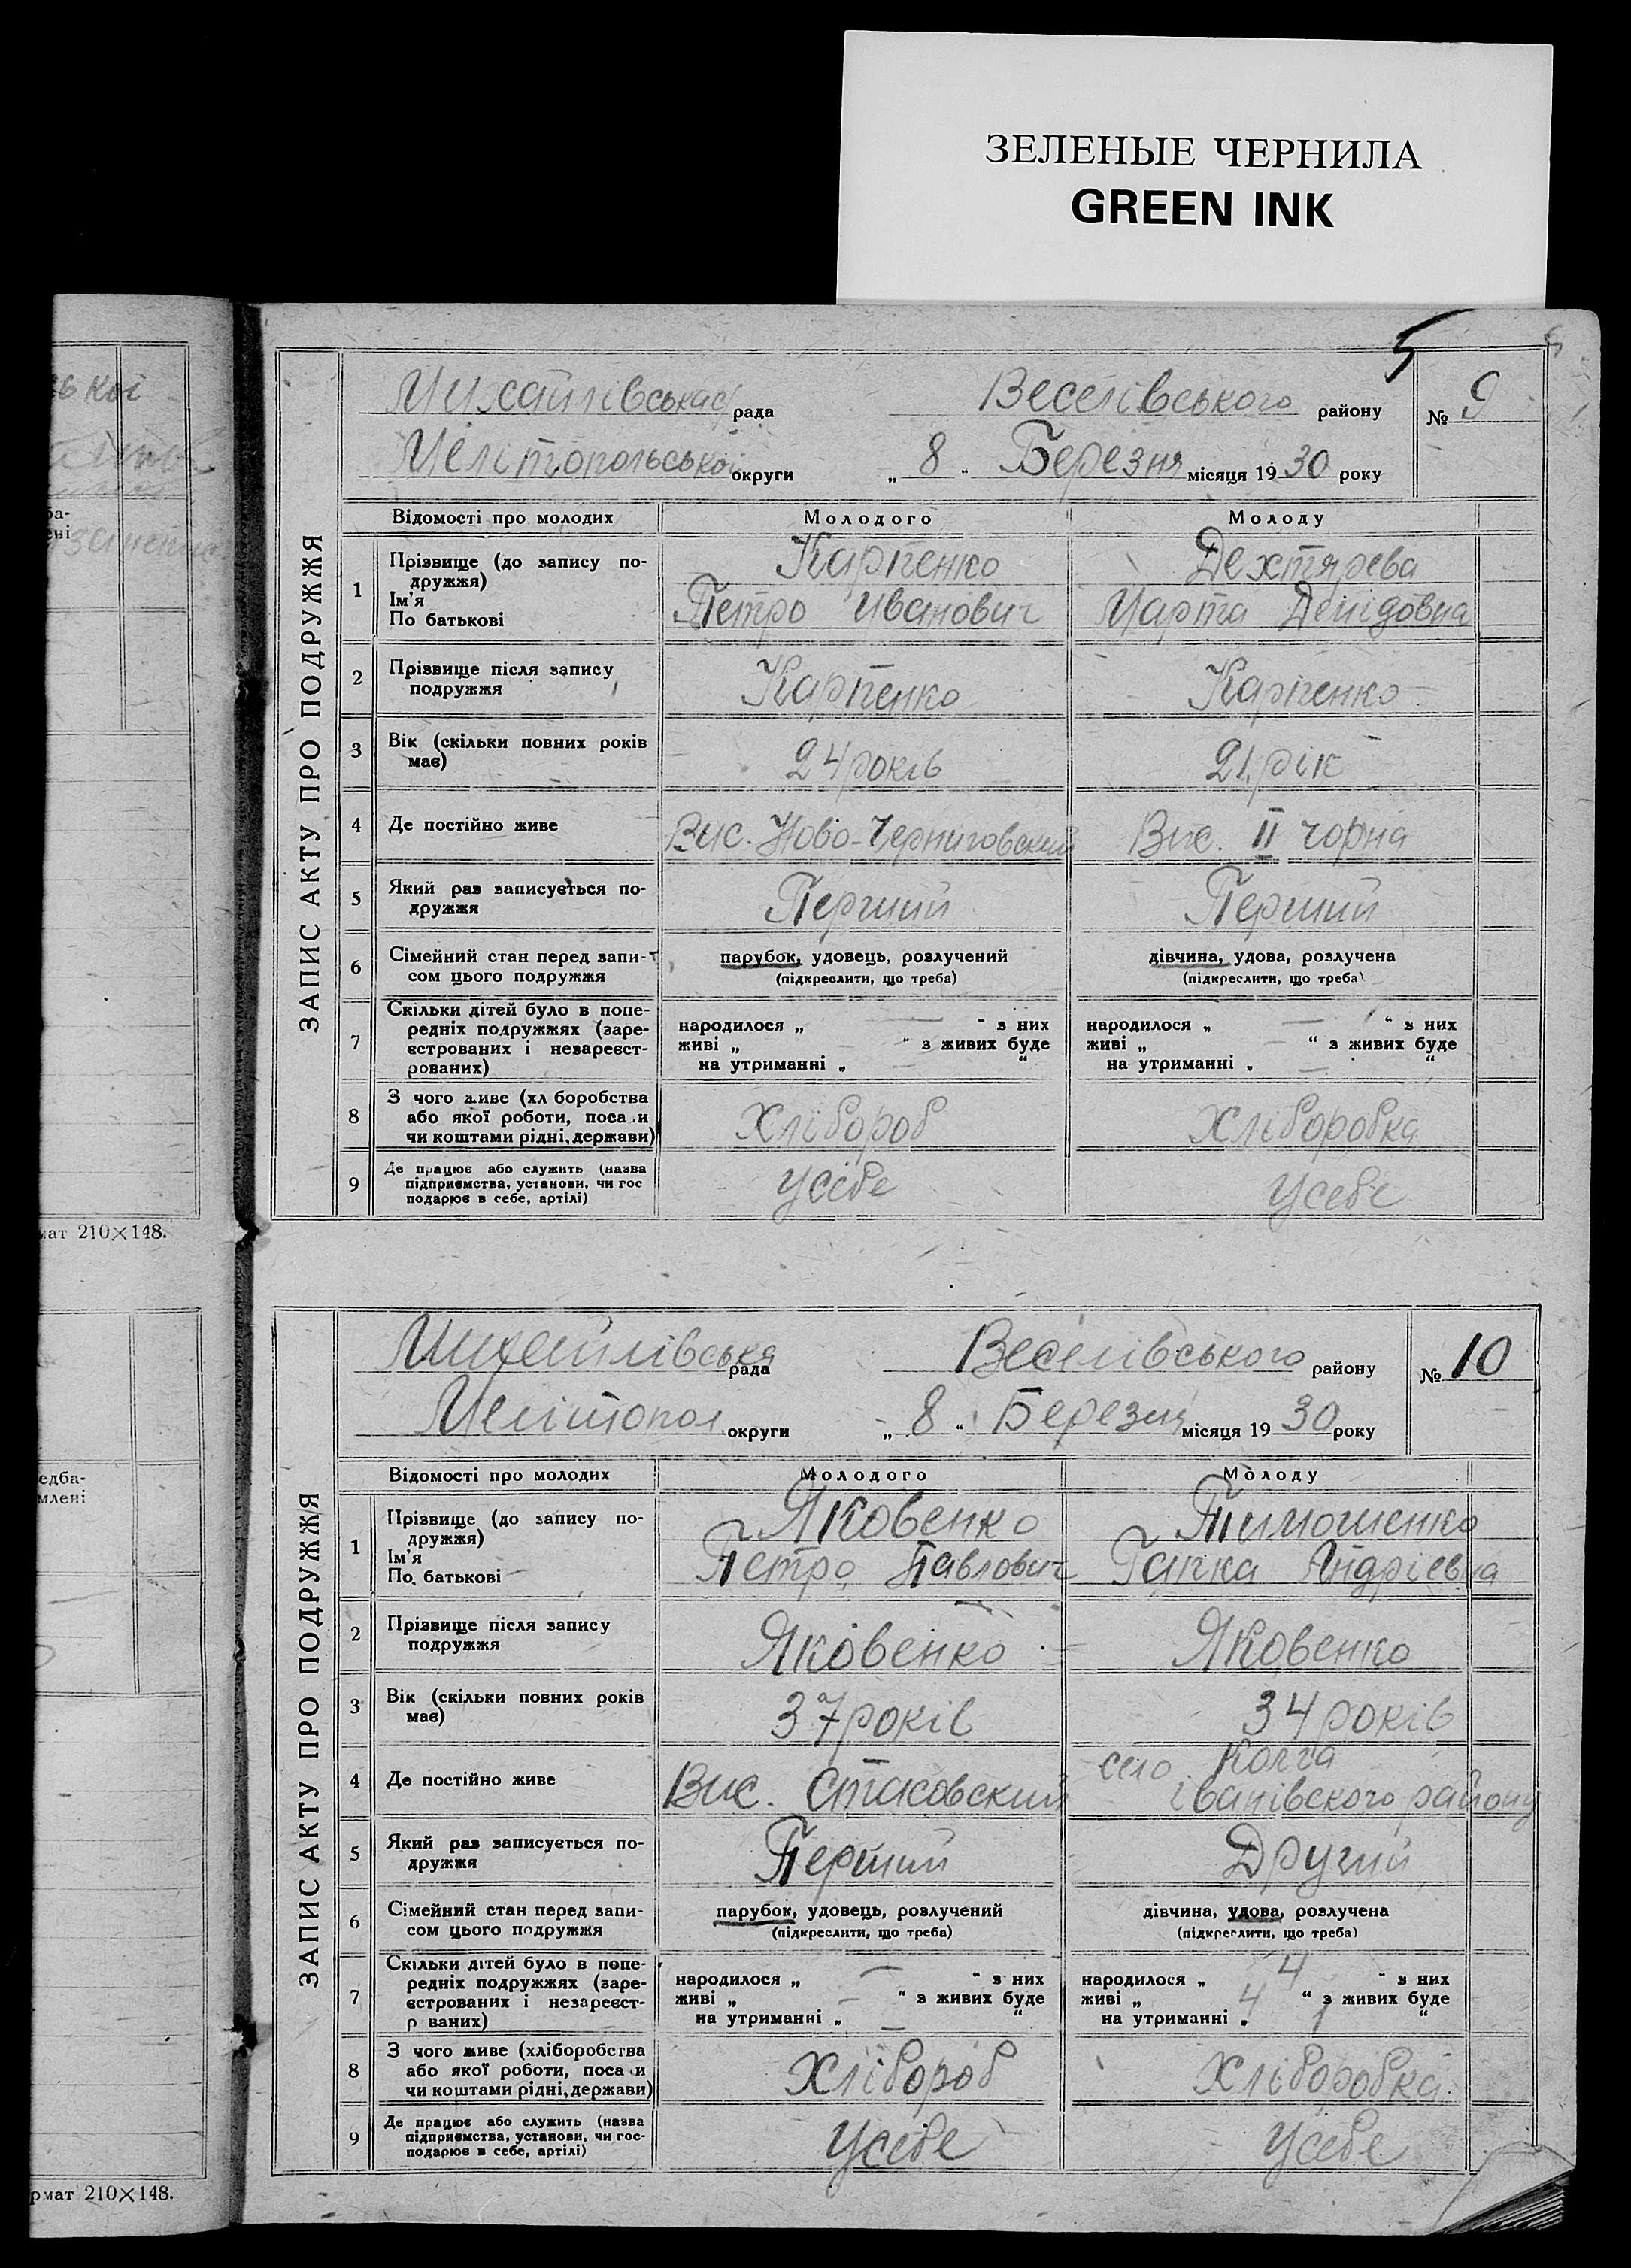 ЗЕЛЕНЫЕ ЧЕРНИЛА
GREEN INK
5
Михайлівська рада Веселівського району № 9
Мелітопольської округи „ 8 " Березня місяця 1930 року
ЗАПИС АКТУ ПРО ПОДРУЖЖЯ
Відомості про молодих Молодого Молоду
1 Прізвище (до запису по-
дружжя) Карпенко Дехтярева
Ім'я
По батькові Петро Иванович Марта Демідовна
2 Прізвище після запису
подружжя Карпенко Карпенко
3 Вік (скільки повних років
має) 24 років 21 рік
4 Де постійно живе Вис. Ново-Черниговский Вис. II чорна
5 Який раз записується по-
дружжя Перший Перший
6 Сімейний стан перед запи-
сом цього подружжя парубок, удовець, розлучений дівчина, удова, розлучена
(підкреслити, що треба) (підкреслити, що треба)
7 Скільки дітей було в попе-
редніх подружжях (заре-
єстрованих і незареєст-
рованих)
народилося „ — " з них народилося „ — " з них
живі „ — " з живих буде живі „ — " з живих буде
на утриманні „ — " на утриманні „ — "
8 З чого живе (хл боробства
або якої роботи, поса и
чи коштами рідні, держави) Хлібороб Хліборобка
9 Де працює або служить (назва
підприємства, установи, чи гос
подарює в себе, артілі) Усебе Усебе
Михайлівська рада Веселівського району № 10
Мелітопол округи „ 8 " Березня місяця 1930 року
ЗАПИС АКТУ ПРО ПОДРУЖЖЯ
Відомості про молодих Молодого Молоду
1 Прізвище (до запису по-
дружжя) Яковенко Тимошенко
Ім'я
По батькові Петро Павлович Ганка Андріевна
2 Прізвище після запису
подружжя Яковенко Яковенко
3 Вік (скільки повних років
має) 37 років 34 років
4 Де постійно живе Вис. Стасовский село
Іванівского району
5 Який раз записується по-
дружжя Перший Другий
6 Сімейний стан перед запи-
сом цього подружжя парубок, удовець, розлучений дівчина, удова, розлучена
(підкреслити, що треба) (підкреслити, що треба)
7 Скільки дітей було в попе-
редніх подружжях (заре-
єстрованих і незареєст-
р ваних)
народилося „ — " з них народилося „ 4 " з них
живі „ — " з живих буде живі „ 4 " з живих буде
на утриманні „ — " на утриманні „ 1 "
8 З чого живе (хліборобства
або якої роботи, поса и
чи коштами рідні, держави) Хлібороб Хліборобка
9 Де працює або служить (назва
підприємства, установи, чи гос-
подарює в себе, артілі) Усебе Усебе
мат 210×148.
едба-
млені
рмат 210×148.